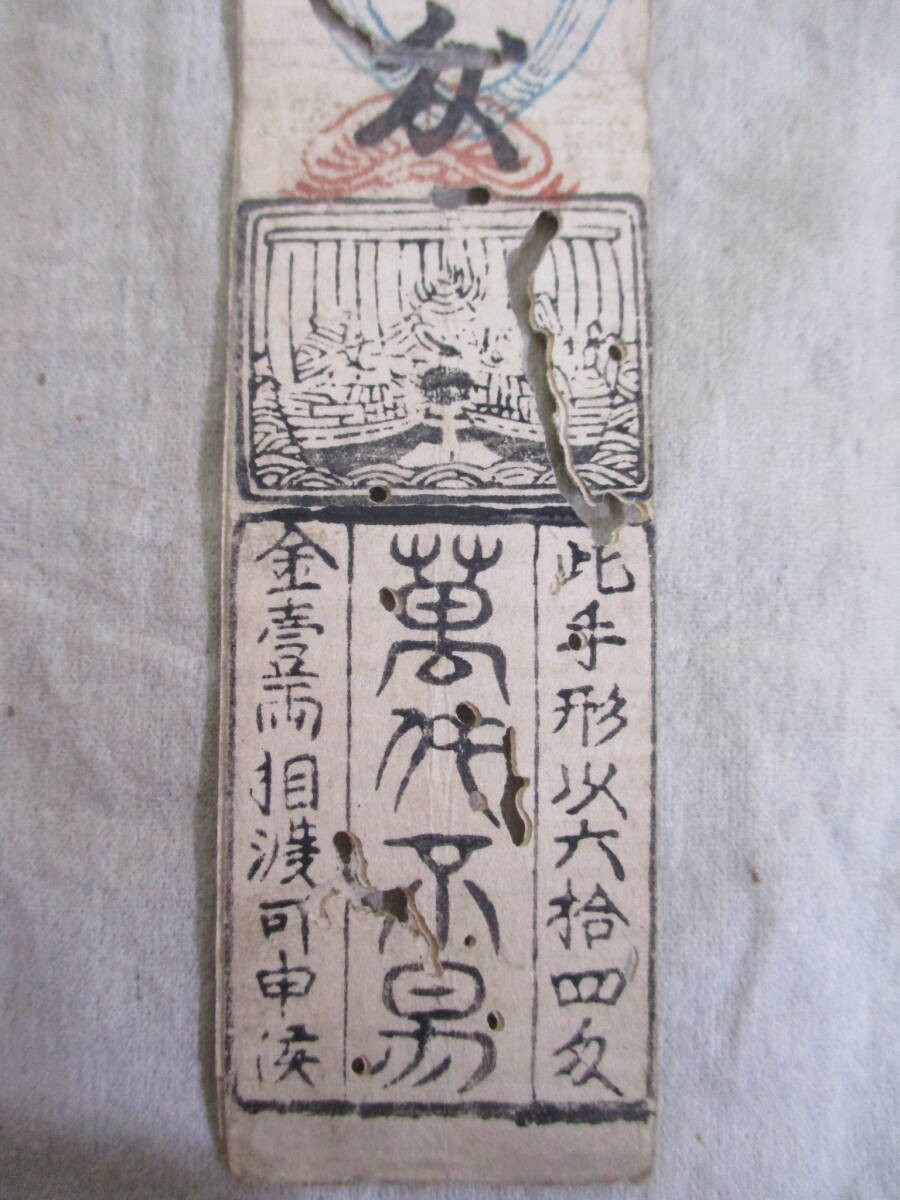 匁
此手形以六拾四匁
萬代不易
金壹兩相渡可申候